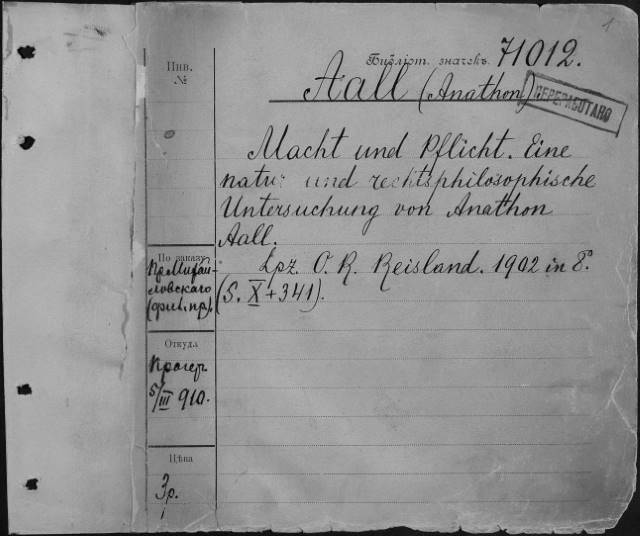 1
Библіот. значекъ. 71012.
Инв.
№
Aall (Anathon)
ПЕРЕРАБОТАНО
Macht und Pflicht. Eine
natur und rechtsphilosophische
Untersuchung von Anathon
Aall.
Lpz. O. R. Reisland. 1902 in 8º.
(S. X + 341).
По заказу
Пр. Михай-
ловскаго
(фил. пр).
Откуда
5/III 910.
Цѣна
3р.